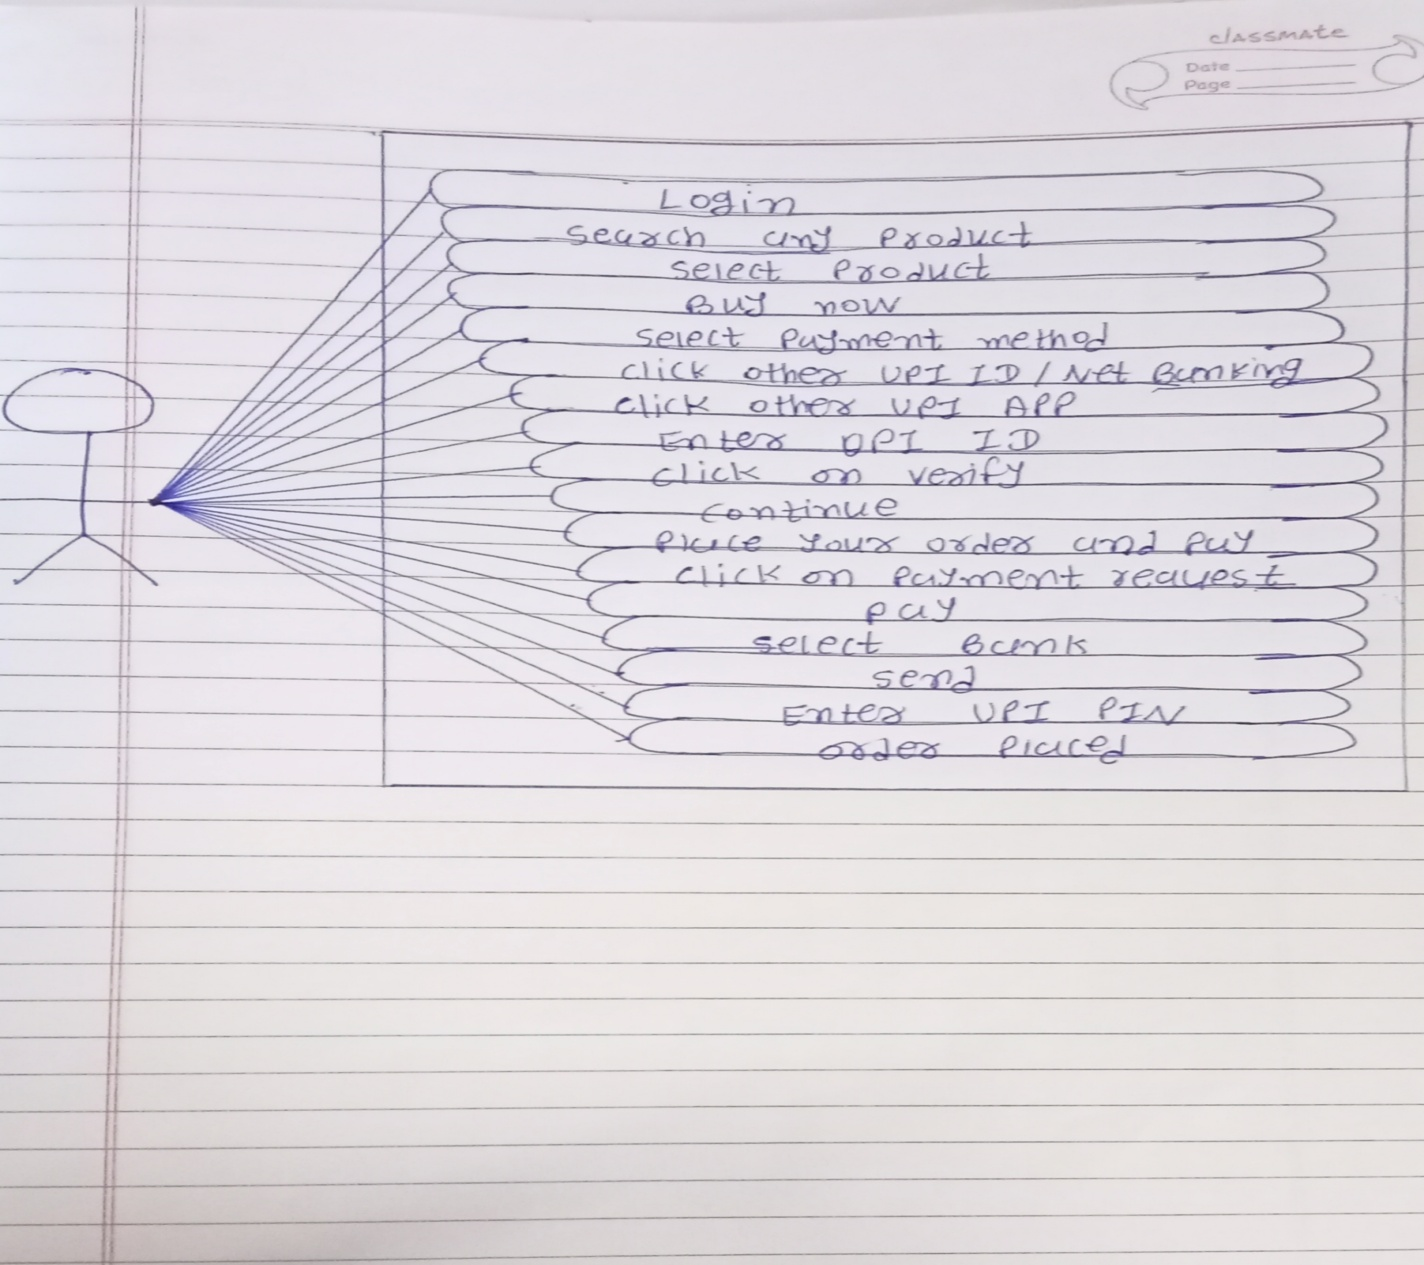 classmate
Date
Page
Login
Search any Product
Select Product
Buy now
Select Payment method
Click other UPI ID / Net Banking
Click other UPI APP
Enter UPI ID
Click on verify
Continue
Place Your order and Pay
Click on Payment request
Pay
Select Bank
Send
Enter UPI PIN
order Placed